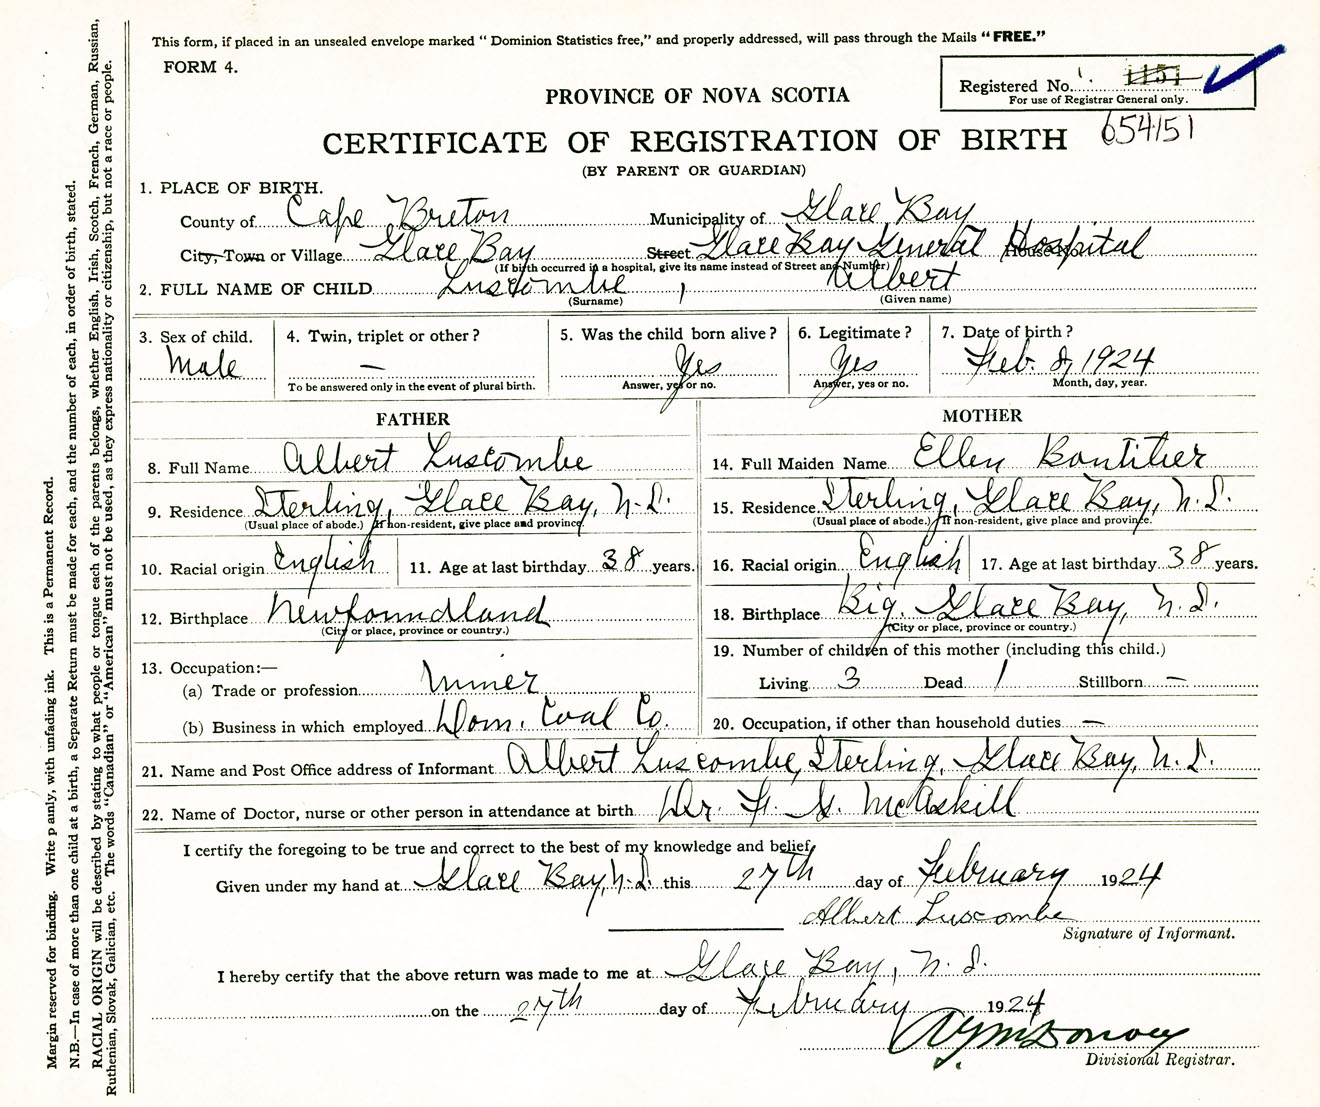 This form, if placed in an unsealed envelope marked " Dominion Statistics free," and properly addressed, will pass through the Mails "FREE."
FORM 4.
Registered No. 1151
For use of Registrar General only.
654151
PROVINCE OF NOVA SCOTIA
CERTIFICATE OF REGISTRATION OF BIRTH
(BY PARENT OR GUARDIAN)
1. PLACE OF BIRTH.
County of Cape Breton Municipality of Glace Bay
City, Town or Village Glace Bay Street Glace Bay General Hospital House No.
(If birth occurred in a hospital, give its name instead of Street and Number)
2. FULL NAME OF CHILD Luscombe, Albert
(Surname) (Given name)
3. Sex of child. Male
4. Twin, triplet or other? —
To be answered only in the event of plural birth.
5. Was the child born alive? Yes
Answer, yes or no.
6. Legitimate? Yes
Answer, yes or no.
7. Date of birth? Feb. 8, 1924
Month, day, year.
FATHER
8. Full Name Albert Luscombe
9. Residence Sterling, Glace Bay, N.S.
(Usual place of abode.) If non-resident, give place and province.
10. Racial origin English 11. Age at last birthday 38 years.
12. Birthplace Newfoundland
(City or place, province or country.)
13. Occupation:—
(a) Trade or profession Miner
(b) Business in which employed Dom. Coal Co.
MOTHER
14. Full Maiden Name Ellen Boutilier
15. Residence Sterling, Glace Bay, N.S.
(Usual place of abode.) If non-resident, give place and province.
16. Racial origin English 17. Age at last birthday 38 years.
18. Birthplace Big. Glace Bay, N.S.
(City or place, province or country.)
19. Number of children of this mother (including this child.)
Living 3 Dead 1 Stillborn —
20. Occupation, if other than household duties —
21. Name and Post Office address of Informant Albert Luscombe, Sterling, Glace Bay, N.S.
22. Name of Doctor, nurse or other person in attendance at birth Dr. McAskill
I certify the foregoing to be true and correct to the best of my knowledge and belief.
Given under my hand at Glace Bay, N.S. this 27th day of February 1924
Albert Luscombe
Signature of Informant.
I hereby certify that the above return was made to me at Glace Bay, N.S.
on the 27th day of February 1924
Divisional Registrar.
Margin reserved for binding. Write p anly, with unfading ink. This is a Permanent Record.
N.B.—In case of more than one child at a birth, a Separate Return must be made for each, and the number of each, in order of birth, stated.
RACIAL ORIGIN will be described by stating to what people or tongue each of the parents belongs, whether English, Irish, Scotch, French, German, Russian,
Ruthenian, Slovak, Galician, etc. The words "Canadian" or "American" must not be used, as they express nationality or citizenship, but not a race or people.